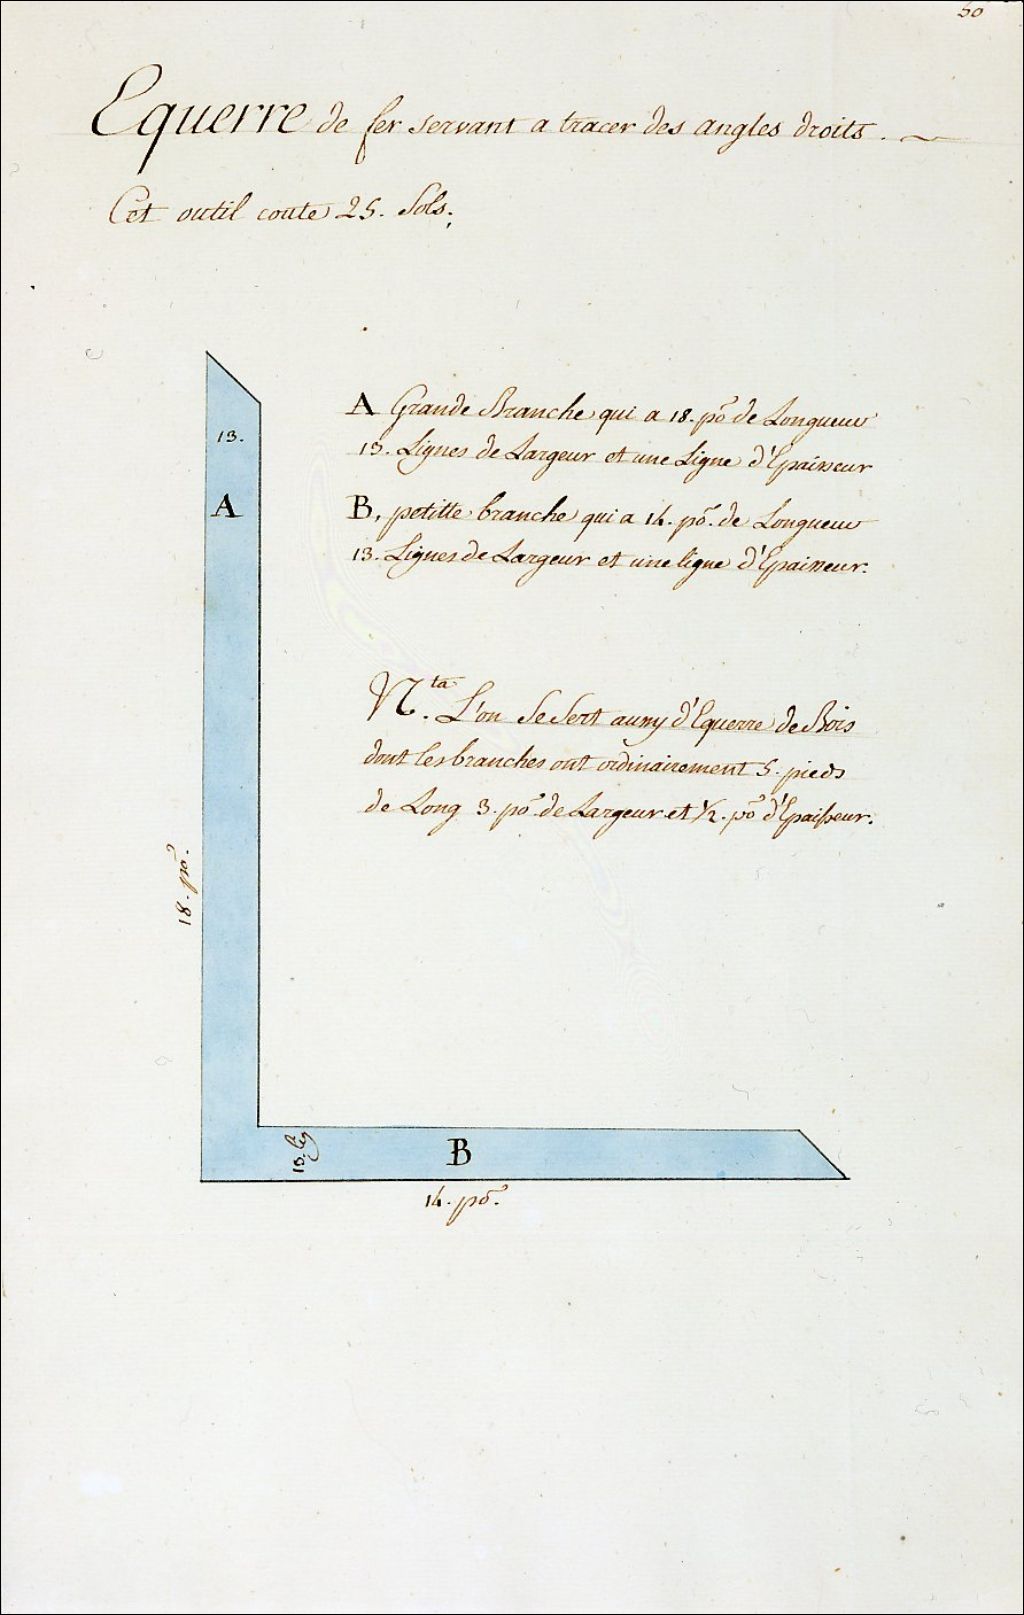 50
Equerre de fer servant a tracer des angles droits.
Cet outil coute 25. Sols.
A Grande Branche qui a 18. po de Longueur
13. Lignes de Largeur et une Ligne d'Epaisseur
B, petitte branche qui a 14. po. de Longueur
13. Lignes de Largeur et une ligne d'Epaisseur.
N.ta L'on se sert aussy d'Equerre de Bois
dont les branches ont ordinairement 5. pieds
de Long 3. po de Largeur et 1/2. po d'Epaisseur.
13.
A
18. po.
13. lig
B
14. po.